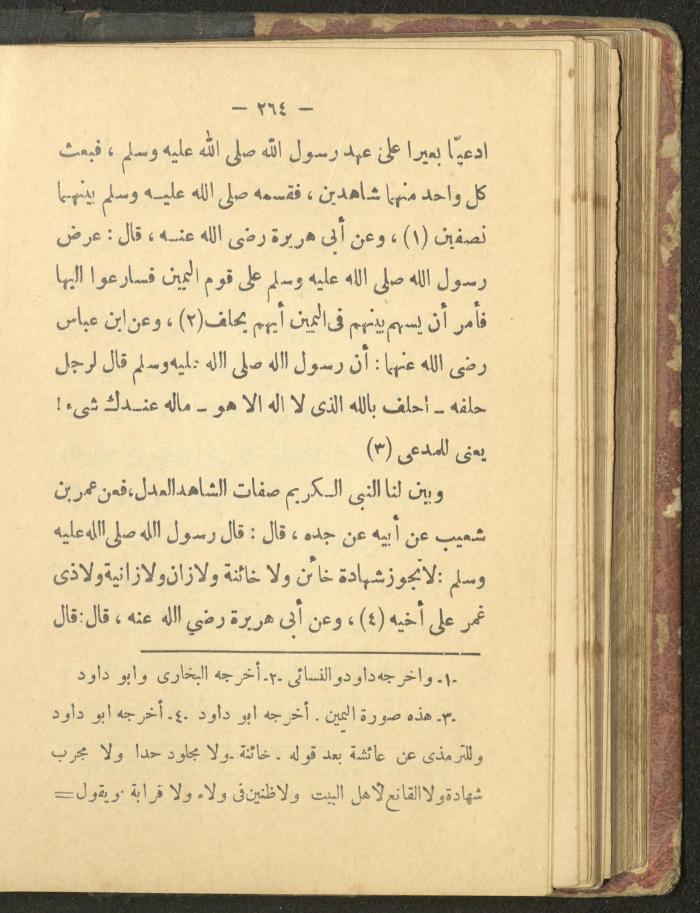 — ٢٦٤ —
ادعيّا بعيرا على عهد رسول الله صلى الله عليه وسلم ، فبعث
كل واحد منهما شاهدين ، فقسمه صلى الله عليه وسلم بينهما
نصفين (١) ، وعن أبى هريرة رضى الله عنه ، قال : عرض
رسول الله صلى الله عليه وسلم على قوم اليمين فسارعوا اليها
فأمر أن يسهم بينهم فى اليمين أيهم يحلف(٢) ، وعن ابن عباس
رضى الله عنهما : أن رسول الله صلى الله عليه وسلم قال لرجل
حلفه ــ احلف بالله الذى لا اله الا هو ــ ماله عندك شىء !
يعنى للمدعى (٣)
وبين لنا النبى الكريم صفات الشاهد العدل،فعن عمر بن
شعيب عن أبيه عن جده ، قال : قال رسول الله صلى الله عليه
وسلم : لا تجوز شهادة خائن ولا خائنة ولا زان ولا زانية ولا ذى
غمر على أخيه (٤) ، وعن أبى هريرة رضي الله عنه ، قال : قال
-١- واخرجه داود والنسائى -٢- أخرجه البخارى وابو داود
-٣- هذه صورة اليمين . أخرجه ابو داود -٤- أخرجه ابو داود
وللترمذى عن عائشة بعد قوله . خائنة -ولا مجلود حدا ولا مجرب
شهادة ولا القانع لأهل البيت ولا ظنين فى ولاء ولا قرابة . ويقول =